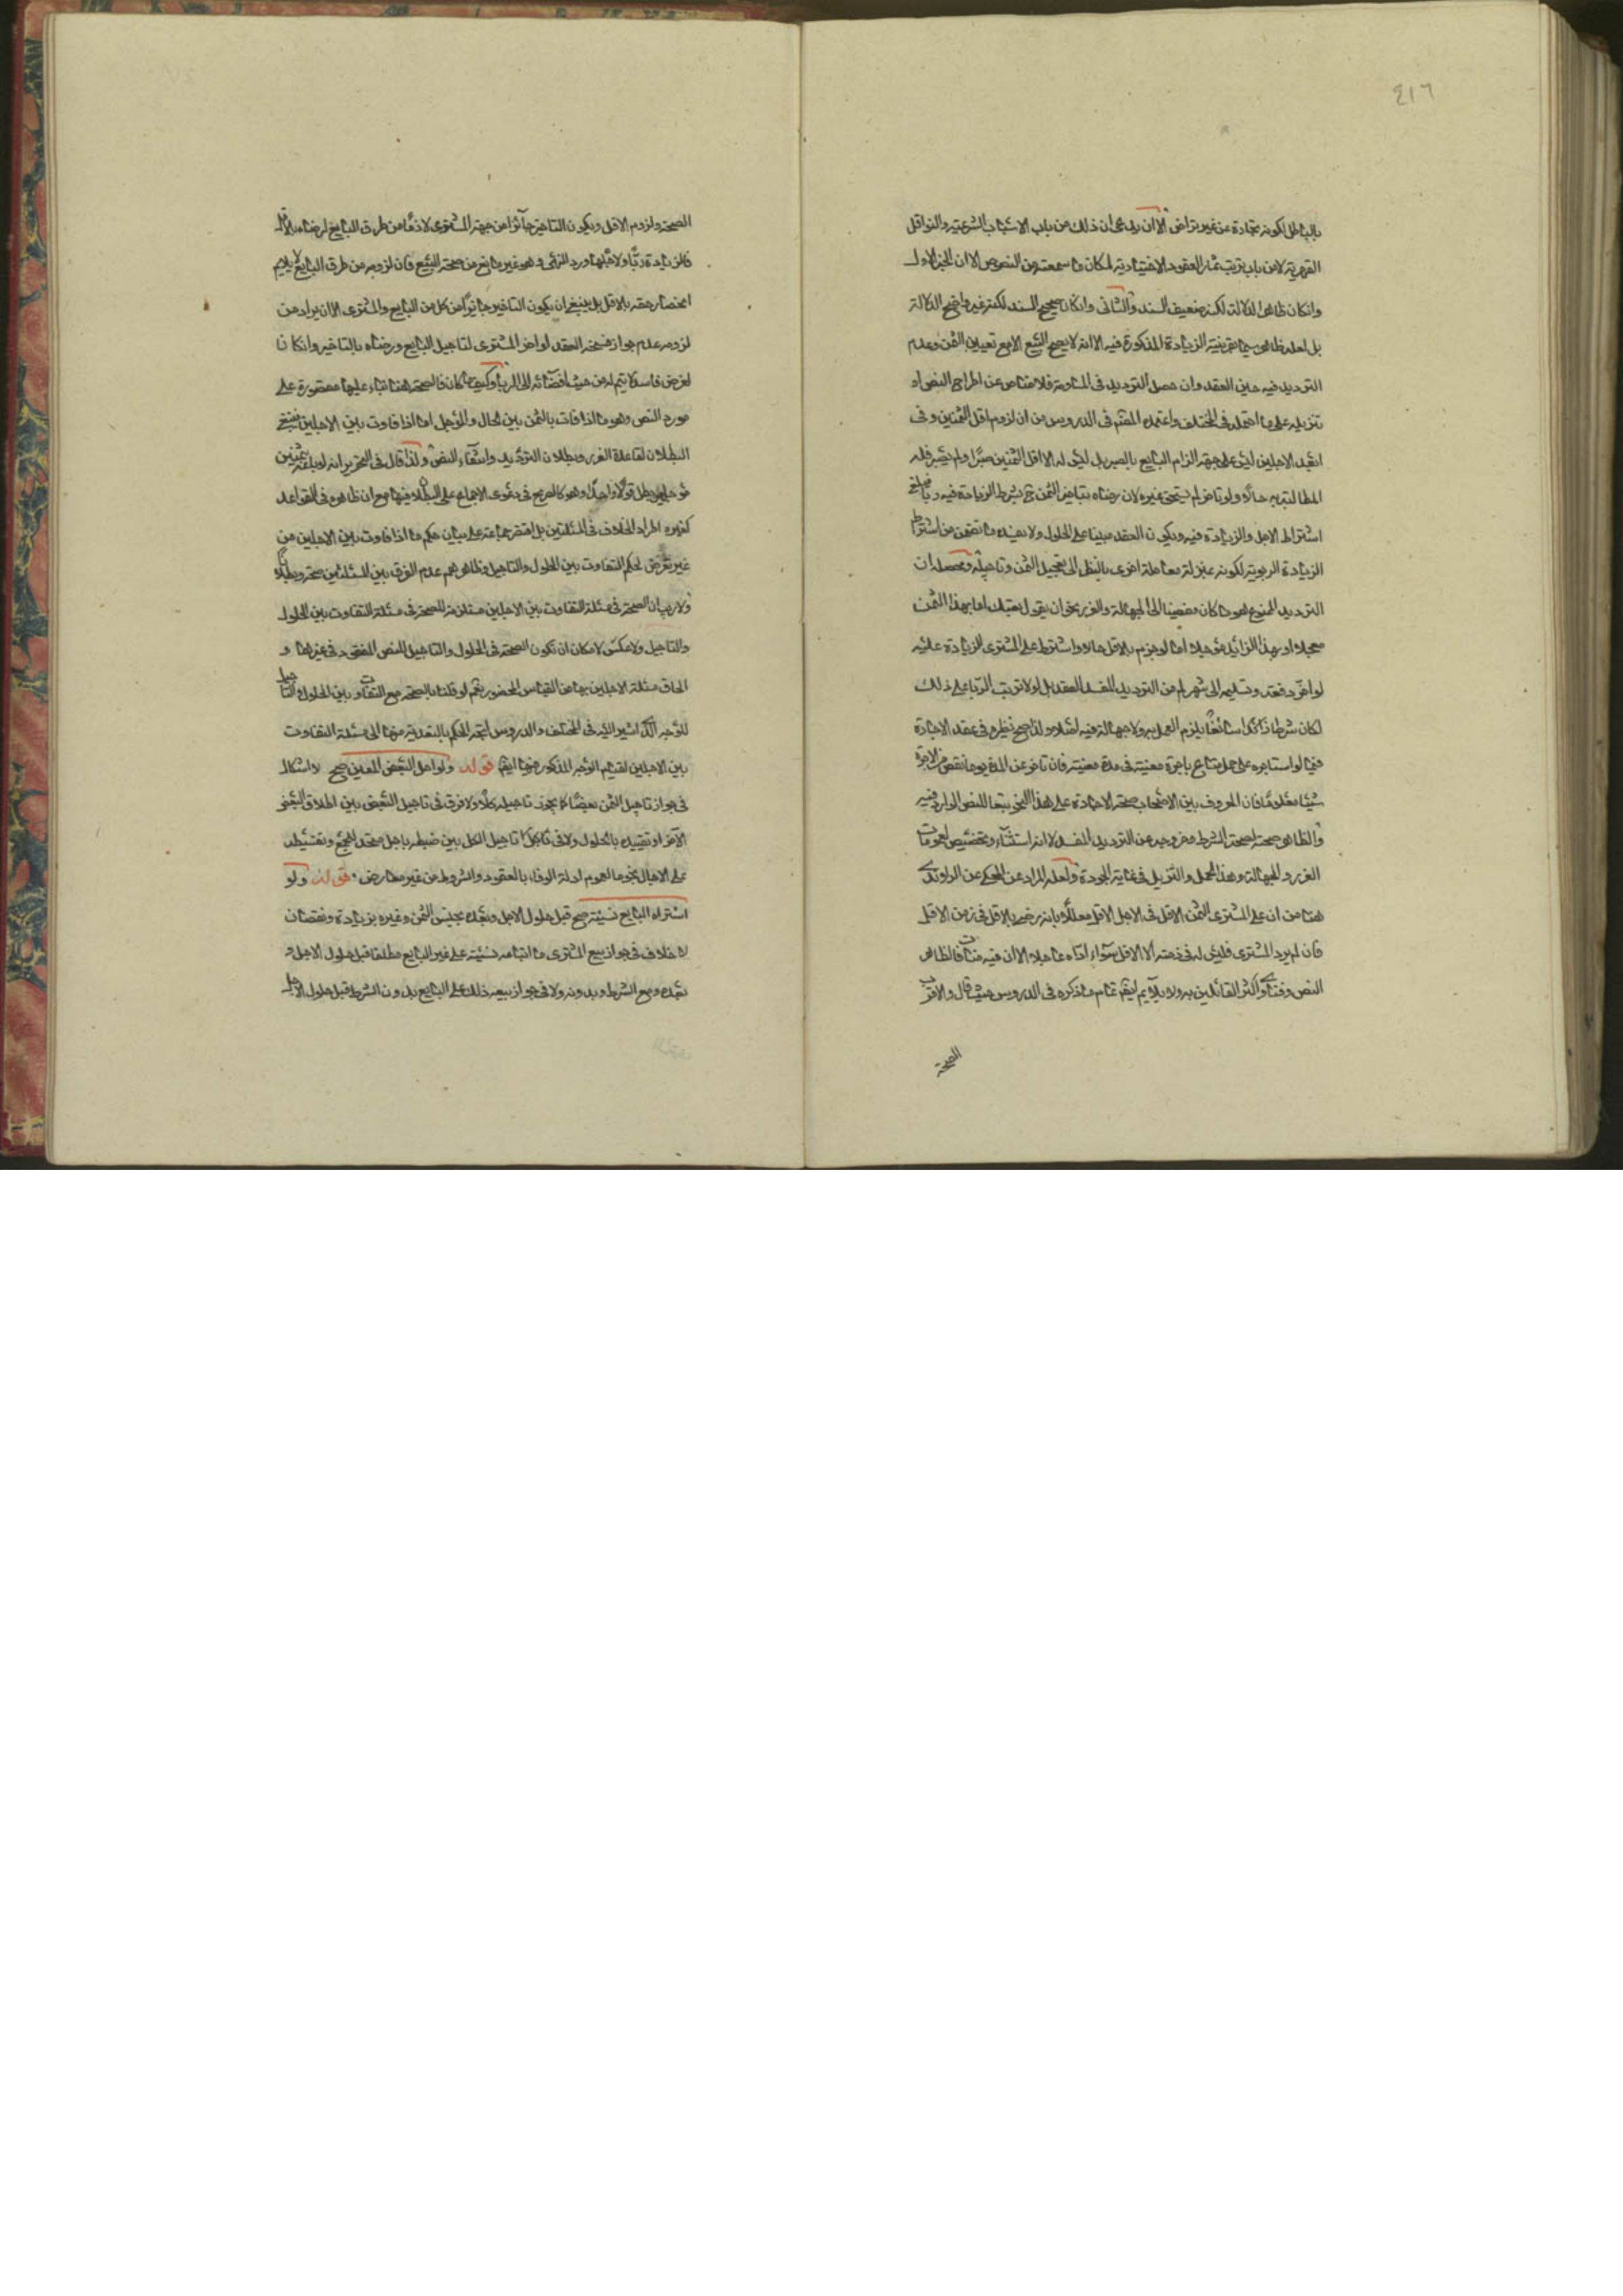 ٤١٦
بالباطل لكونه تجارة عن غير تراض الا ان يدعى ان ذلك من باب الاسباب الشرعية والنواقل
القهرية لا من باب ترتيب ثمار العقود الاختيارية لمكان ما سمعته من النصوص الا ان الخبر الاول
وانكان ظاهر الدلالة لكنه ضعيف السند والثانى وانكان صحيح السند لكنه غير واضح الدلالة
بل لعله ظاهر سيما بقرينة الزيادة المذكورة فيه الا انه لا يصح البيع الا مع تعيين الثمن وعدم
الترديد فيه حين العقد وان حصل الترديد فى المساومة فلا مناص عن اطراح النص او
تنزيله على ما احتمله فى المختلف واعتمده فى الدروس من ان لزوم اقل الثمنين وفى
ابعد الاجلين ليس على جهة الزام البايع بالصبر بل ليس له الا اقل الثمنين صبر او لم يصبر فله
المطالبة به حالا ولو تاخر لم يستحق غيره لان رضاه بتاخير الثمن بشرط الزيادة فيه
اشتراط الاجل والزيادة فيه ويكون العقد مبنيا على الحلول ولا يفيده ما تضمن من اشتراط
الزيادة الربوية لكونه بمنزلة معاملة اخرى بالنظر الى تعجيل الثمن وتاجيله ومحصله ان
الترديد الممنوع هو ما كان مفضيا الى الجهالة والغرر بخو ان يقول بعتك اما بهذا الثمن
معجلا او بهذا الزائد مؤجلا اما لو جزم بالاقل حالا واشترط على المشترى الزيادة عليه
لو اخر دفعه وتسليمه الى شهر لم من الترديد المفسد للعقد بل لولا ترتب الربا على ذلك
لكان شرطا سائغا يلزم العمل به ولا جهالة فيه اصلا ولذا صح نظيره فى عقد الاجارة
فيما لو استاجره على حمل متاع باجرة معينة فى مدة معينة فان تاخر عن المدة يوما نقص من الاجرة
شيئا معلوما فان المعروف بين الاصحاب صحة الاجارة على هذا النحو تبعا للنص الوارد فيه
والظاهر صحته لصحة الشرط وخروجه عن الترديد المفسد لا انه استثناء وتخصيص لعمومات
الغرر والجهالة وهذا المحمل والتنزيل فى غاية الجودة ولعله المراد عن المحكى عن الراوندى
هنا من ان على المشترى الثمن الاقل فى الاجل الاقل معللا بانه رضى بالاقل فى زمن الاقل
فان لم يرد المشترى فليس له فى ذمته الا الاقل سواء اداه عاجلا الا ان فيه منافات لظاهر
النص وفتاوى اكثر القائلين به ولا يلايم تمام ما ذكره فى الدروس حيث قال والاقرب
الصحة
الصحة ولزوم الاقل ويكون التاخير جائزا من جهة المشترى لازما من طرف البايع لرضاه بالاقل
فالزيادة ربا ولاجلها ورد النهى وهو غير مانع من صحة البيع فان لزومه من طرف البايع لا يلايم
انحصار حقه بالاقل بل ينبغى ان يكون التاخير جايزا من كل من البايع والمشترى الا ان يراد من
لزومه عدم جواز فسخه العقد لو اخر المشترى لتاجيل البايع ورضاه بالتاخير وانكان
لغرض فاسد لا يتم له من حيث افضائه الى الربا وكيف كان فالصحة هنا بناء عليها مقصورة على
مورد النص وهو ما اذا فاوت بالثمن بين الحال والمؤجل اما اذا فاوت بين الاجلين
البطلان لقاعدة الغرر وبطلان الترديد وانتفاء النص ولذا قال فى التحرير انه لو باعه بثمنين
مؤجلين بطل قولا واحدا وهو كالصريح فى دعوى الاجماع على البطلان فيها مع ان ظاهره فى القواعد
كغيره اطراد الخلاف فى المسئلتين بل اقتصر جماعة على بيان حكم ما اذا فاوت بين الاجلين من
غير تعرض لحكم التفاوت بين الحلول والتاجيل وظاهرهم عدم الفرق بين المسئلتين صحة وبطلانا
ولا ريب ان الصحة فى مسئلة التفاوت بين الاجلين مستلزمة للصحة فى مسئلة التفاوت بين الحلول
والتاجيل ولا عكس لامكان ان تكون الصحة فى الحلول والتاجيل للنص المفقود فى غيرها و
الحاق مسئلة الاجلين بها من القياس المحضور نعم لو قلنا بالصحة مع التفاوت بين الحلول والتاجيل
للوجه الذى اشير اليه فى المختلف والدروس اتجه الحكم بالتعدية منها الى مسئلة التفاوت
بين الاجلين لقيام الوجه المذكور فيها ايضا قوله ولو اجل البعض المعين صح لا اشكال
فى جواز تاجيل الثمن بعضا كما يجوز تاجيله كلا ولا فرق فى تاجيل البعض بين اطلاق البعض
الآخر او تقييده بالحلول ولا فى تاجيل الكل بين ضبطه باجل متحد للجميع وتقسيطه
على الاجال نجوما لعموم ادلة الوفاء بالعقود والشروط من غير معارض قوله ولو
اشتراه البايع نسيئة صح قبل حلول الاجل وبعده بجنس الثمن وغيره بزيادة ونقصان
لا خلاف فى جواز بيع المشترى ما ابتاعه نسيئة على غير البايع مطلقا قبل حلول الاجل و
بعده ومع الشرط وبدونه ولا فى جواز بيعه ذلك على البايع بدون الشرط قبل حلول الاجل